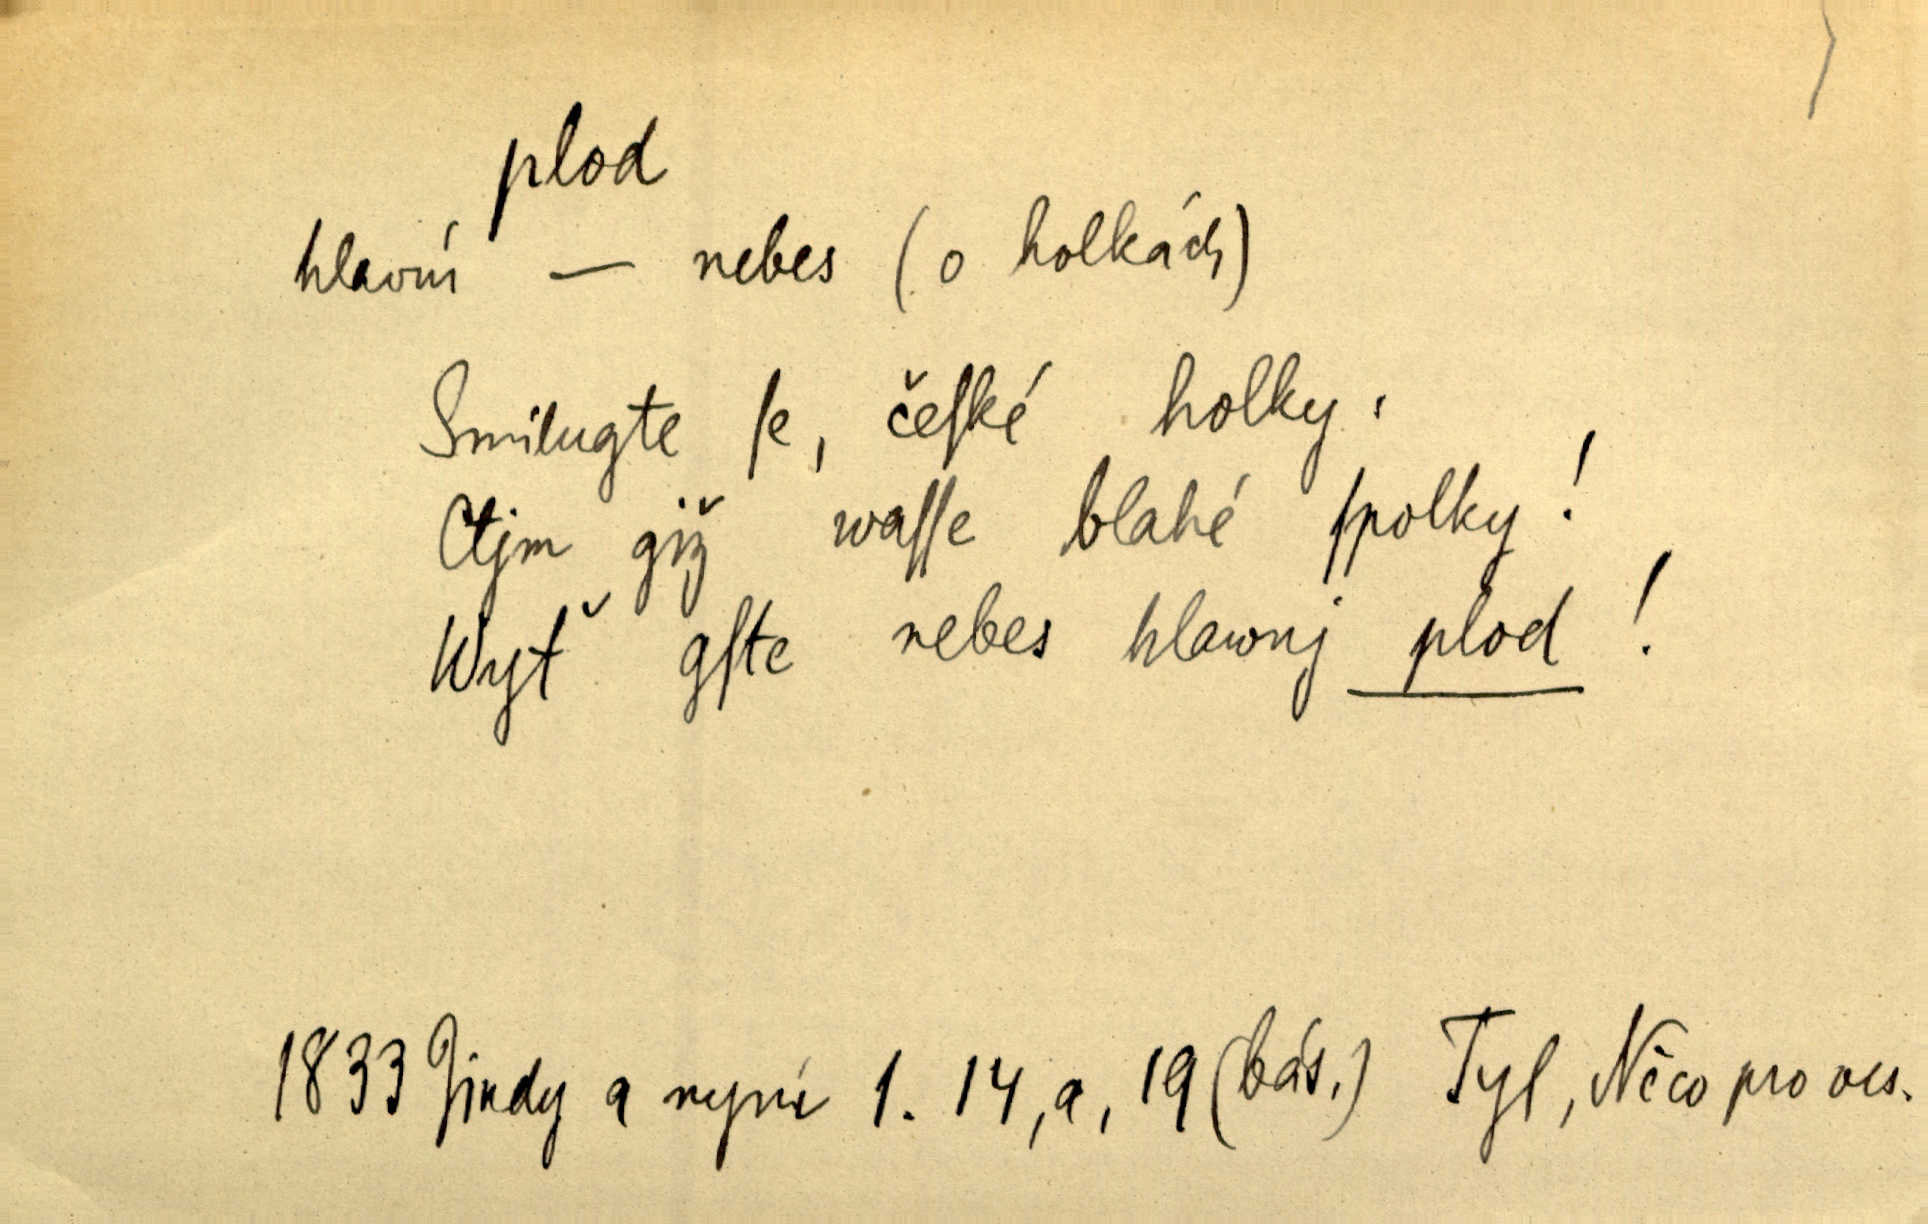 plod
hlavní — nebes (o holkách)
Smilugte ſe, čeſké holky.
Ctjm giž waſſe blahé ſpolky!
Wyť gſte nebes hlawnj plod!
1833 Jindy a nyní 1. 14, a, 19 (bás.) Tyl, Něco pro ves.